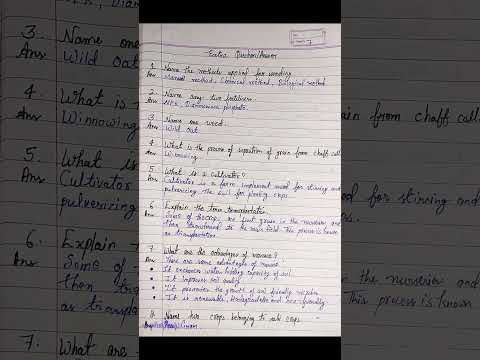 Extra Question/Answer
1. Name the methods applied for weeding.
Ans Manual method, Chemical method, Biological method
2. Name any two fertilisers.
Ans NPK, Diammonium phosphate.
3. Name one weed.
Ans Wild Oat
4. What is the process of separation of grain from chaff called
Ans Winnowing.
5. What is a cultivator?
Ans Cultivator is a farm implement used for stirring and
pulverizing the soil for planting crops.
6. Explain the term transplantation
Ans Some of the crops are first grown in the nurseries and
then transplanted to the main field. This process is known
as transplantation.
7. What are the advantages of manure?
Ans There are some advantages of manure:
• It enhances water holding capacity of soil.
• It improves soil quality
• It promotes the growth of soil friendly microbes
• It is renewable, biodegradable and eco-friendly.
8. Name two crops belonging to rabi crops